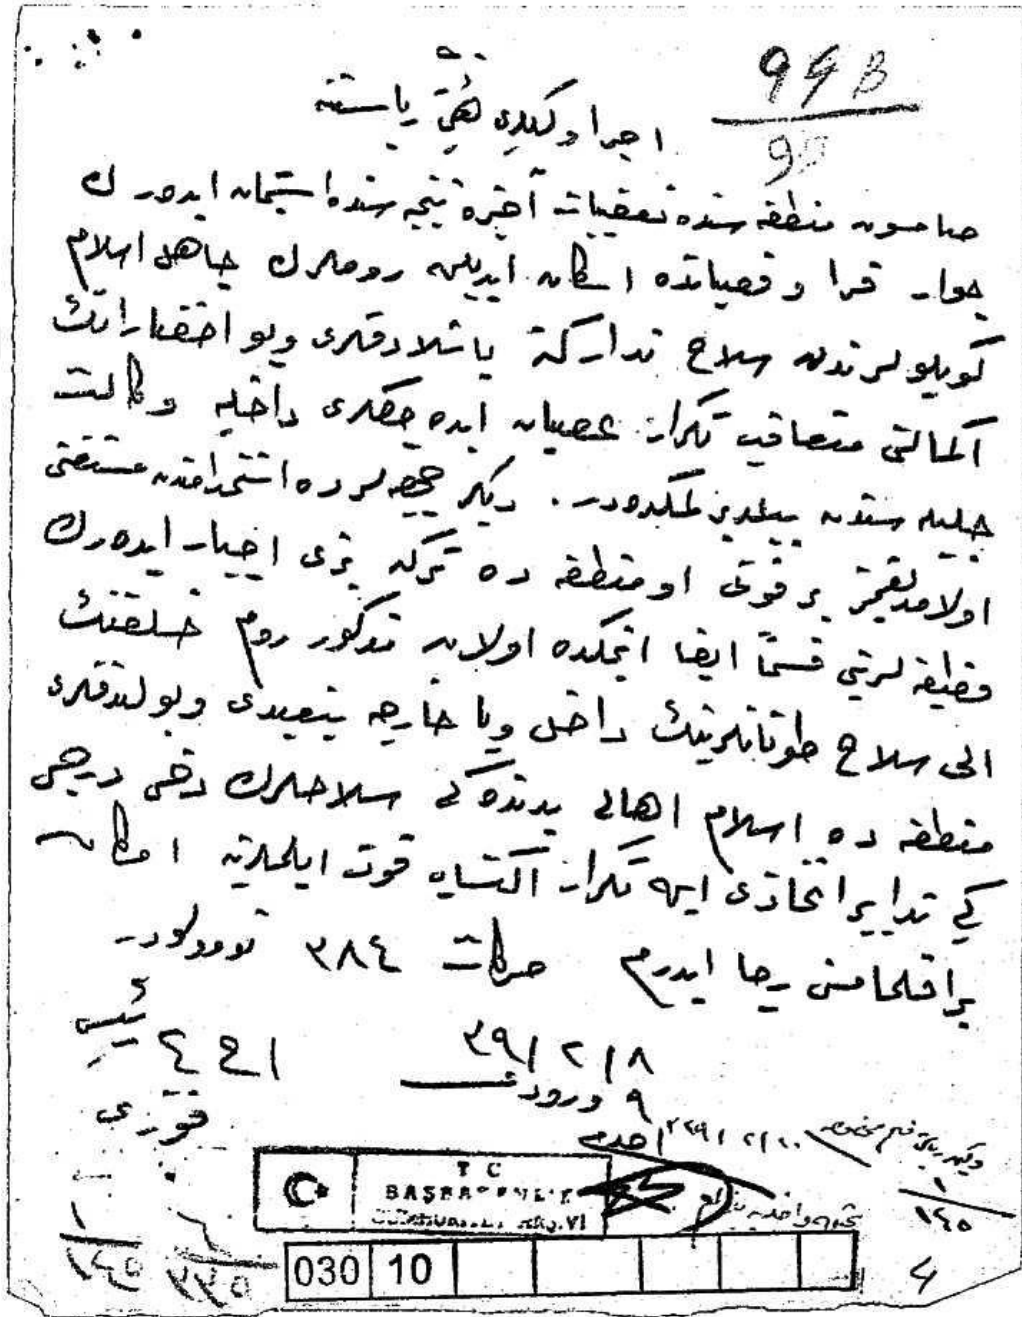 998
اجرا وكيللری هيئتی رياستنه
صامسون منطقه سنده تعقيبات اخيره نتيجه سنده استيمان ايده رك
جوار قرا و قصباتده اسكان ايديلن روملرك جاهل اسلام
كويلولرندن سلاح تداركنه باشلادقلری وبو احضاراتك
اكمالنی متعاقب تكرار عصيان ايده جكلری داخليه وكالت
جليله سندن بيلديرلمكده در. ديكر جبهه لرده استخدامندن مستغنی
اولامديغمز بر قوتی او منطقه ده تركه بزی اجبار ايده رك
وظيفه لرينی قسماً ايفا ايتمكده اولان مذكور روم خلقنك
الی سلاح طوتانلرينك داخل ويا خارجه تبعيدی وبولندقلری
منطقه ده اسلام اهالی يدنده كی سلاحلرك دخی درجی
كبی تدابير اتخاذی ايله تكرار اكتساب قوت ايلملرينه امكان
براقلمامسنی رجا ايدرم حركات ٣٨٤ نومرولودر
٣٩/٢/٨
ا ح ع ر رئيسی
فوزی
٩ ورودی
T C
BAŞBAKANLIK
CUMHURİYET ARŞİVİ
030 10
١٤٥
4